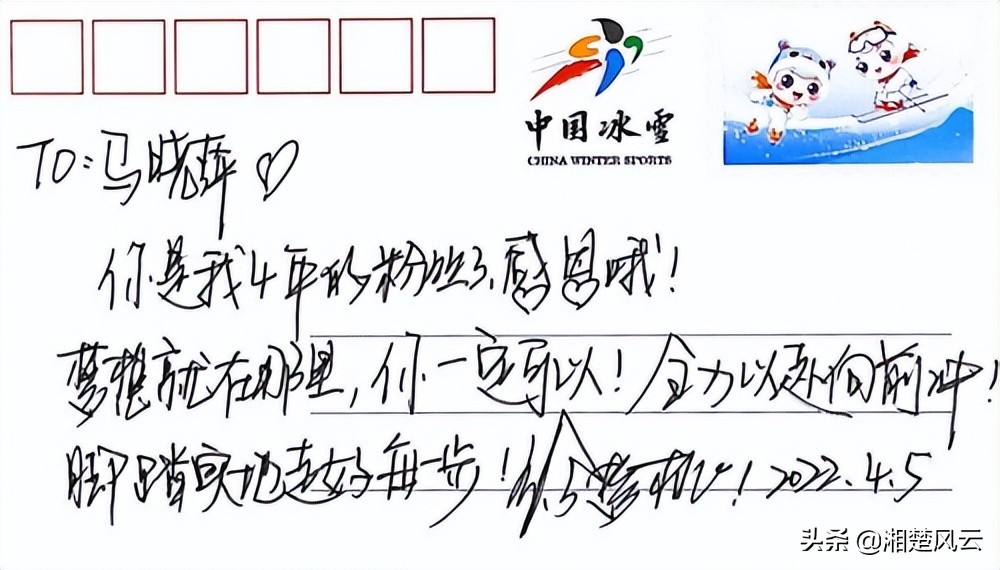 中国冰雪
CHINA WINTER SPORTS
TO:马晓萍♡
你是我4年的粉丝了,感恩哦!
梦想就在那里,你一定可以!全力以赴向前冲!
脚踏实地走好每一步! 2022.4.5
头条 @湘楚风云